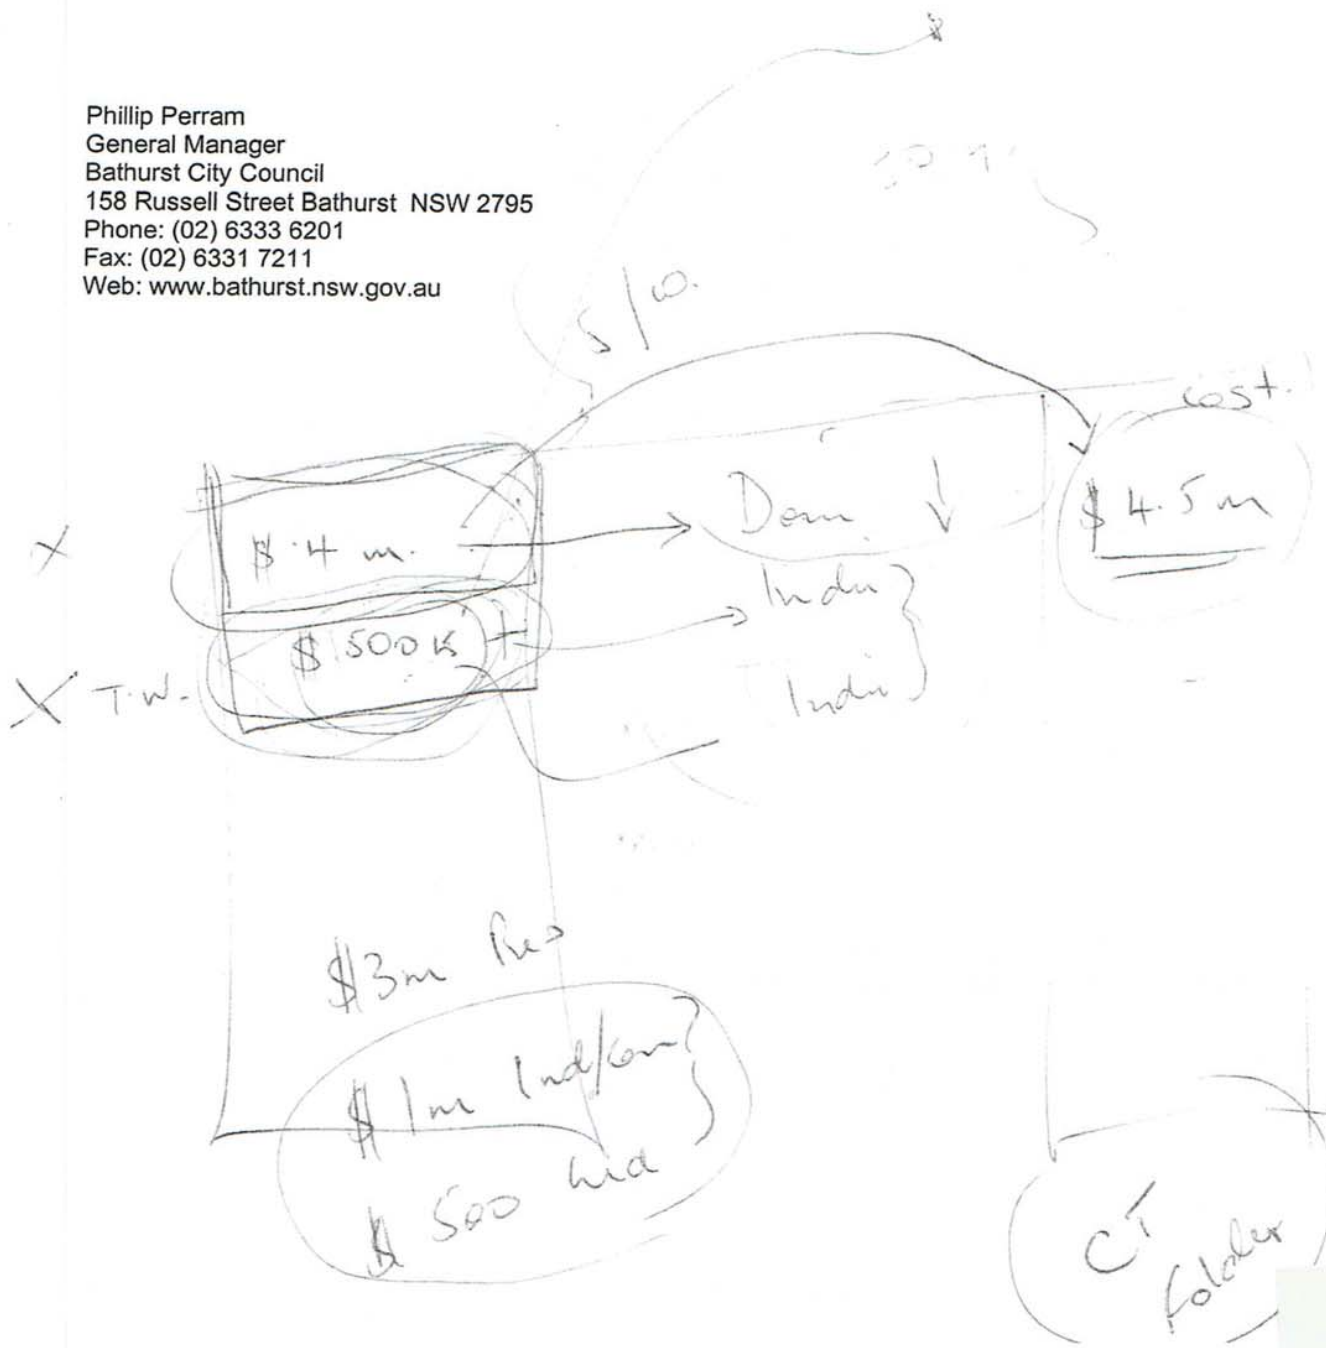 Phillip Perram
General Manager
Bathurst City Council
158 Russell Street Bathurst NSW 2795
Phone: (02) 6333 6201
Fax: (02) 6331 7211
Web: www.bathurst.nsw.gov.au
S/W.
cost.
X $4 m. Dom $4.5 m
X T.W. $500K
$3m Res
$1m Ind/Com
$500
CT
folder